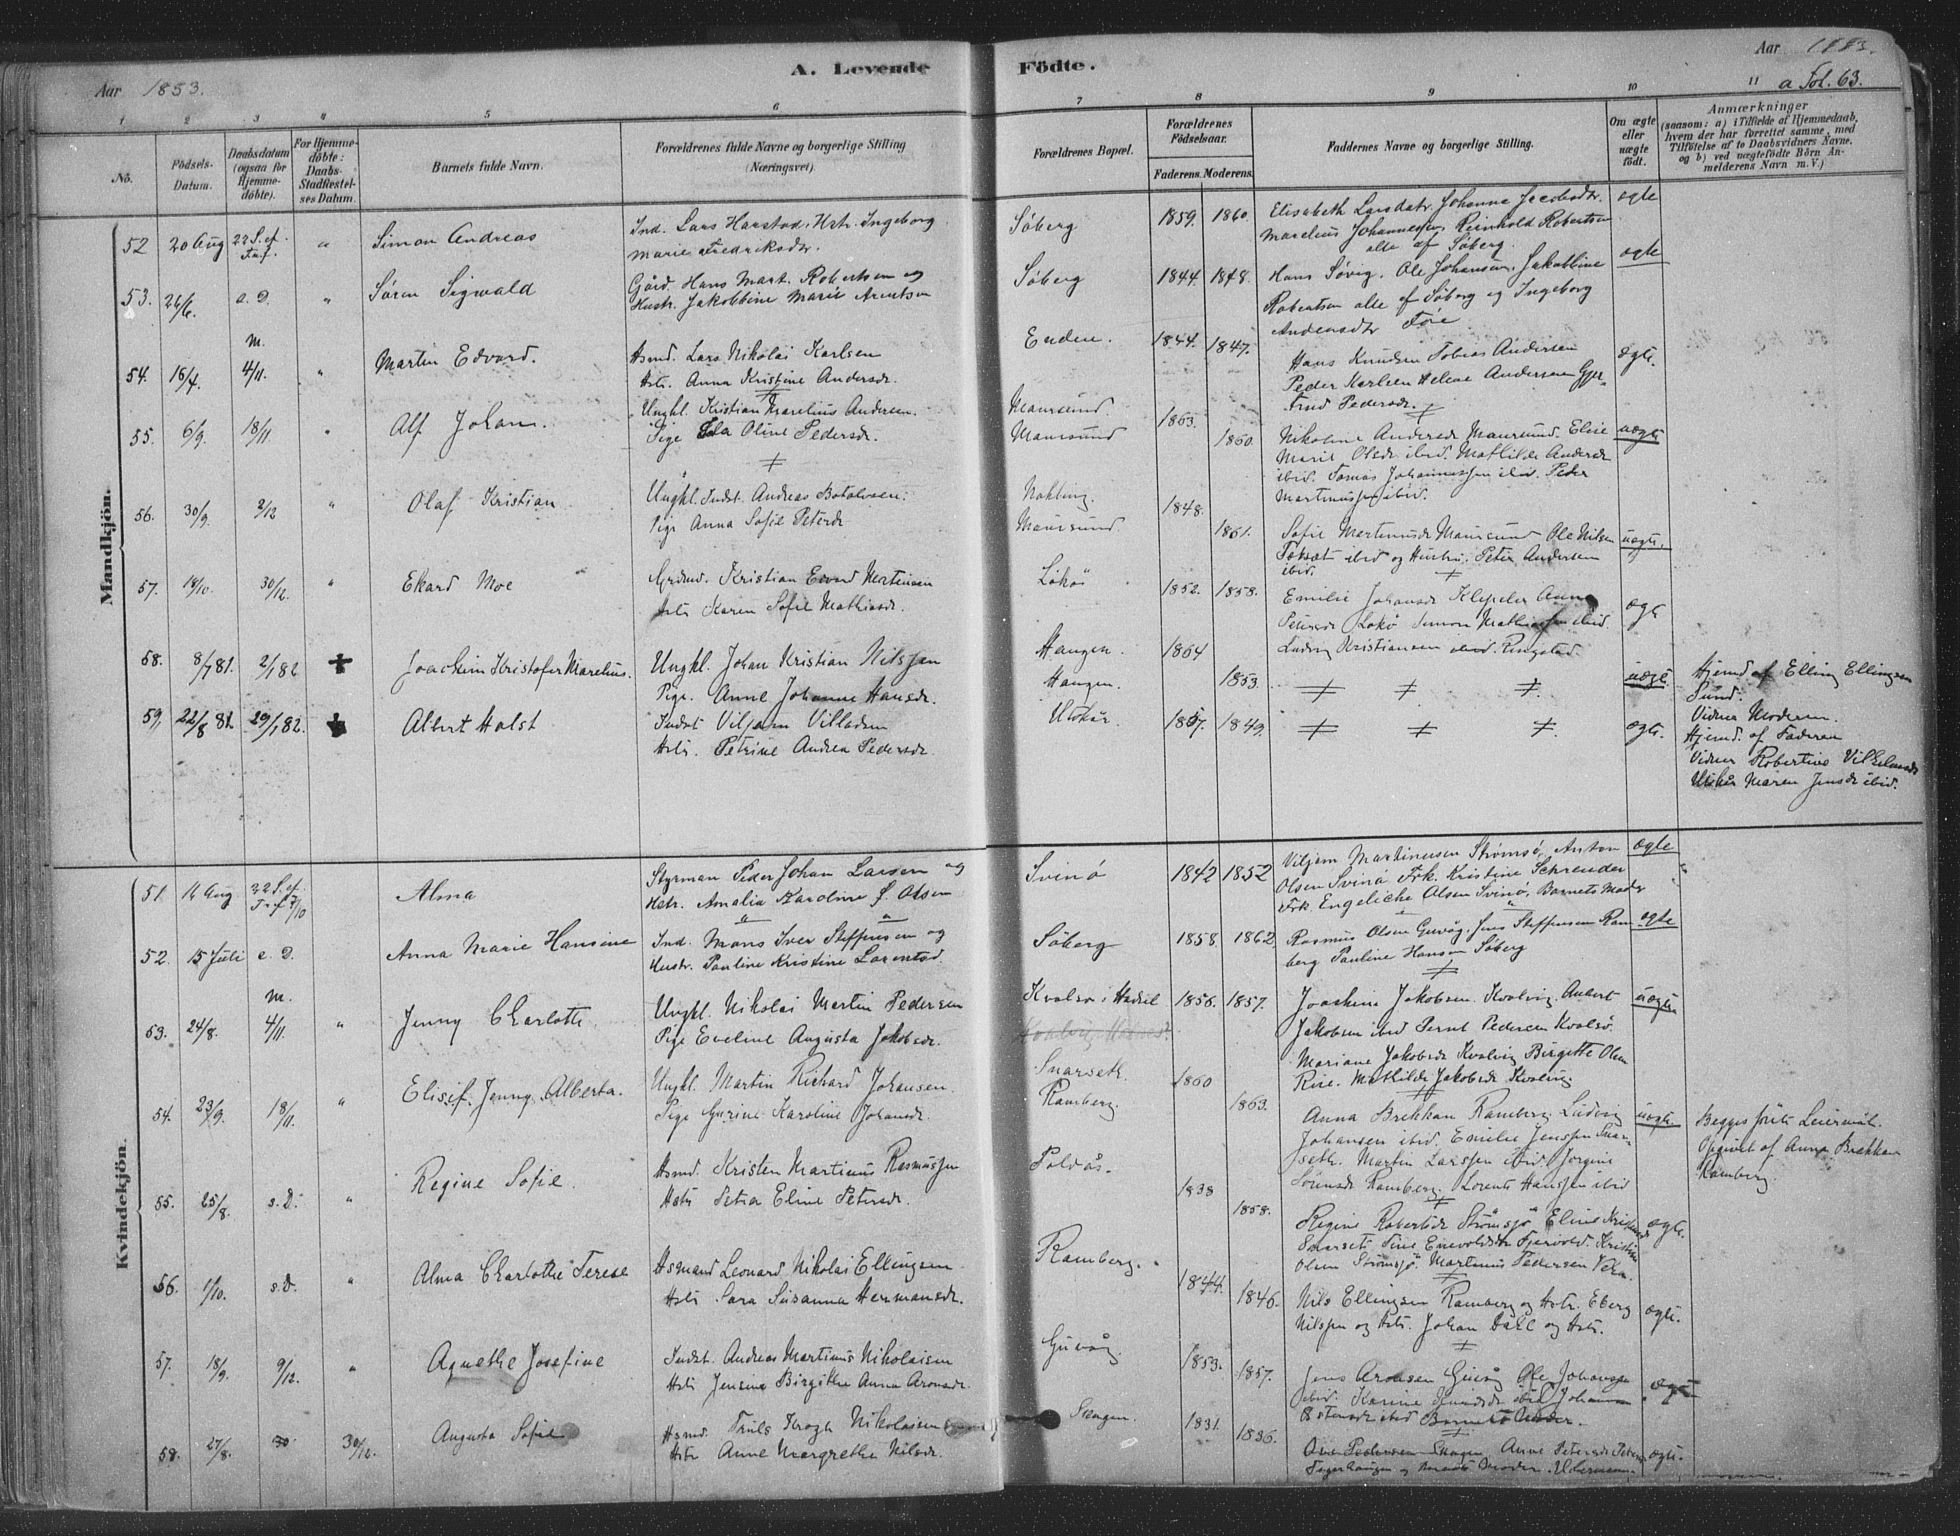 Aar 1853.
A. Levende
Födte.
Aar 1883.
a Fol. 63.
1 2 3 4 5 6
7 8 9 10 11
No.
Födsels-Datum.
Daabsdatum (ogsaa for Hjemme-döbte).
For Hjemme-döbte: Daabs-Stadfæstel-ses Datum.
Barnets fulde Navn.
Forældrenes fulde Navne og borgerlige Stilling (Næringsvei).
Forældrenes Bopæl.
Forældrenes Födselsaar.
Faderens. Moderens.
Faddernes Navne og borgerlige Stilling.
Om ægte eller uægte födt.
Anmærkninger
(saasom: a) i Tilfælde af Hjemmedaab, hvem der har forrettet samme, med Tilföielse af to Daabsvidners Navne, og b) ved uægtefödte Börn An-melderens Navn m. V.)
Mandkjön.
52 20 Aug 22 S. ef. Tref. " Simon Andreas Ind. Lars Harstad, Hstr. Ingeborg
Marie Fredriksdr.
Söberg 1859. 1860. Elisabeth Larsdatr. Johanne Jacobsdtr.
Marelius Johannessen, Reinhold Robertsen
alle af Söberg.
ægte
53. 26/6. s. D. " Sören Sigvald Gård. Hans Mart. Robertsen og
Hustr. Jakobbine Marie Arentsen
Söberg 1844. 1848. Hans Sövig. Ole Johansen. Jakobbine
Robertsen alle af Söberg og Ingeborg
Andersdtr Töie
ægte
54. 16/7. m. 4/11. " Martin Edvard. Hsmd. Lars Nikolai Karlsen
Hstr. Anna Kristine Andersdr.
Enden. 1844. 1847. Hans Knudsen Tobias Andersen
Peder Karlsen Helene Andersen Gjer-
trud Pedersdr.
ægte.
55. 6/9. 18/11 " Alf Johan. Ungkl. Kristian Marelius Andersen.
Pige Ida Oline Pedersdr.
Maursund.
Maursund
1863. 1860. Nikoline Andersdr Maursund. Elise
Marie Olsdr ibid. Mathilde Andersdr
ibid. Tomas Johannessen ibid. Peder
Martinussen ibid.
uægte
56. 30/9. 2/12 " Olaf Kristian Ungkl. Indst. Andreas Botolvsen.
Pige Anna Sofie Petersdr
Maursund
1848. 1861. Sofie Martinusdr Maursund Ole Nilsen
ibid og Hustru. Peter Andersen
ibid.
uægte.
57. 14/10. 30/12. " Ekard Moe Grdmd. Kristian Edvard Mortensen
Hstr Karen Sofie Mathiasdr.
Lökö 1852. 1858. Emilie Johansdr Klepeler Anna
Petersdr Lökö Simon Mathiassen ibid.
Ludvig Kristiansen ibid. Ringstad.
ægte
58. 8/7 81. 2/1 82 + Joachim Kristofer Marelius. Ungkl. Johan Kristian Nilssen
Pige. Anne Johanne Hansdr.
Haugen.
Haugen.
1864 1853. uægte. Hjemd af Elling Ellingsen
Sund.
Vidner Moderen.
59, 22/8 81. 29/1 82. + Albert Holst Indst Viljam Villadsen
Hstr. Petrine Andrea Pedersdr.
Utskår. 1857. 1849. ægte. Hjemd. af Faderen
Vidner Robertine Vilhelmsdr
Utskår Maren Jensdr ibid.
Kvindekjön.
51. 14 Aug 22 S. ef. Tref. 7/10 Alma Styrman Peder Johan Larsen og
Hstr. Amalia Karoline f. Olsen
Svinö 1842 1852 Viljam Martinussen Strömsö, Anton
Olsen Svinö Frk. Kristine Schrender
Frk. Engeliche Olsen Svinö, Barnets Moder
ægte "
52. 15 Juli s. D. Anna Marie Hansine Ind. Mons Iver Steffensen og
Hustr. Pauline Kristine Larentsd.
Söberg 1858. 1862 Rasmus Olsen Guvåg, Jens Steffensen Ram-
berg Pauline Hansen Söberg
ægte
53. 24/8. m. 4/11. " Jenny Charlotte Ungkl. Nikolai Martin Pedersen
Pige Eveline Augusta Jakobsdr.
Kvalsö i Hadsel 1856. 1857. Joachim Jakobsen. Kvalvig Aubert
Jakobsen ibid Bernt Pedersen Kvalsö.
Mariane Jakobsdr Kvalvig Birgitte Olsen
Rise. Mathilde Jakobsdr Kvalvig
uægte
54. 23/9. 18/11. " Elisif. Jenny. Alberta. Ungkl. Martin Richard Johansen.
Pige Gurine Karoline Johansdr.
Snarseth.
Ramberg.
1860 1863. Anna Brekkan Ramberg. Ludvig
Johansen ibid. Emilie Jenssen Snar-
seth. Martin Larssen ibid Jorgine
Sörensdr Ramberg. Lorents Hanssen ibid
uægte. Begges förste Leiermål.
Opgivet af Anna Brekkan
Ramberg.
55. 25/8. s. D. " Regine Sofie. Hsmd. Kristen Martinus Rasmussen
Hstr Petra Eline Petersdr.
Poldås. 1838 1858. Regine Robertsdr Strömsjö, Eline Kristensdr
Snarset. Tine Envoldsdtr Fjervold. Kristine
Olsen Strömsjö. Martinus Pedersen
ægte.
56. 1/10. s. D. " Alma Charlotte Terese Hsmand Leonard Nikolai Ellingsen
Hstr. Sara Susanna Hermansdr.
Ramberg. 1844. 1846. Nils Ellingsen Ramberg og Hstr. Eberg
Nilssen og Hstr. Johan Dahl og Hstr.
ægte.
57. 18/9. 9/12. " Agnethe Josefine Indst. Andreas Martinus Nikolaisen
Hstr Jensine Birgithe Anna Aronsdr.
Guvåg. 1853. 1857. Jens Aronsen Guvåg Ole Johanssen
ibid. Karine ibid Johanna
ibid Barnets Moder.
ægte
58. 27/8. 30/12. Augusta Sofie Hsmd. Truls Krogh Nikolaisen
Hstr Anne Margrethe Nilsdr.
Skagen. 1831. 1836. Ove Pedersen Skagen, Anne Petersdr
og Barnets Moder.
ægte.